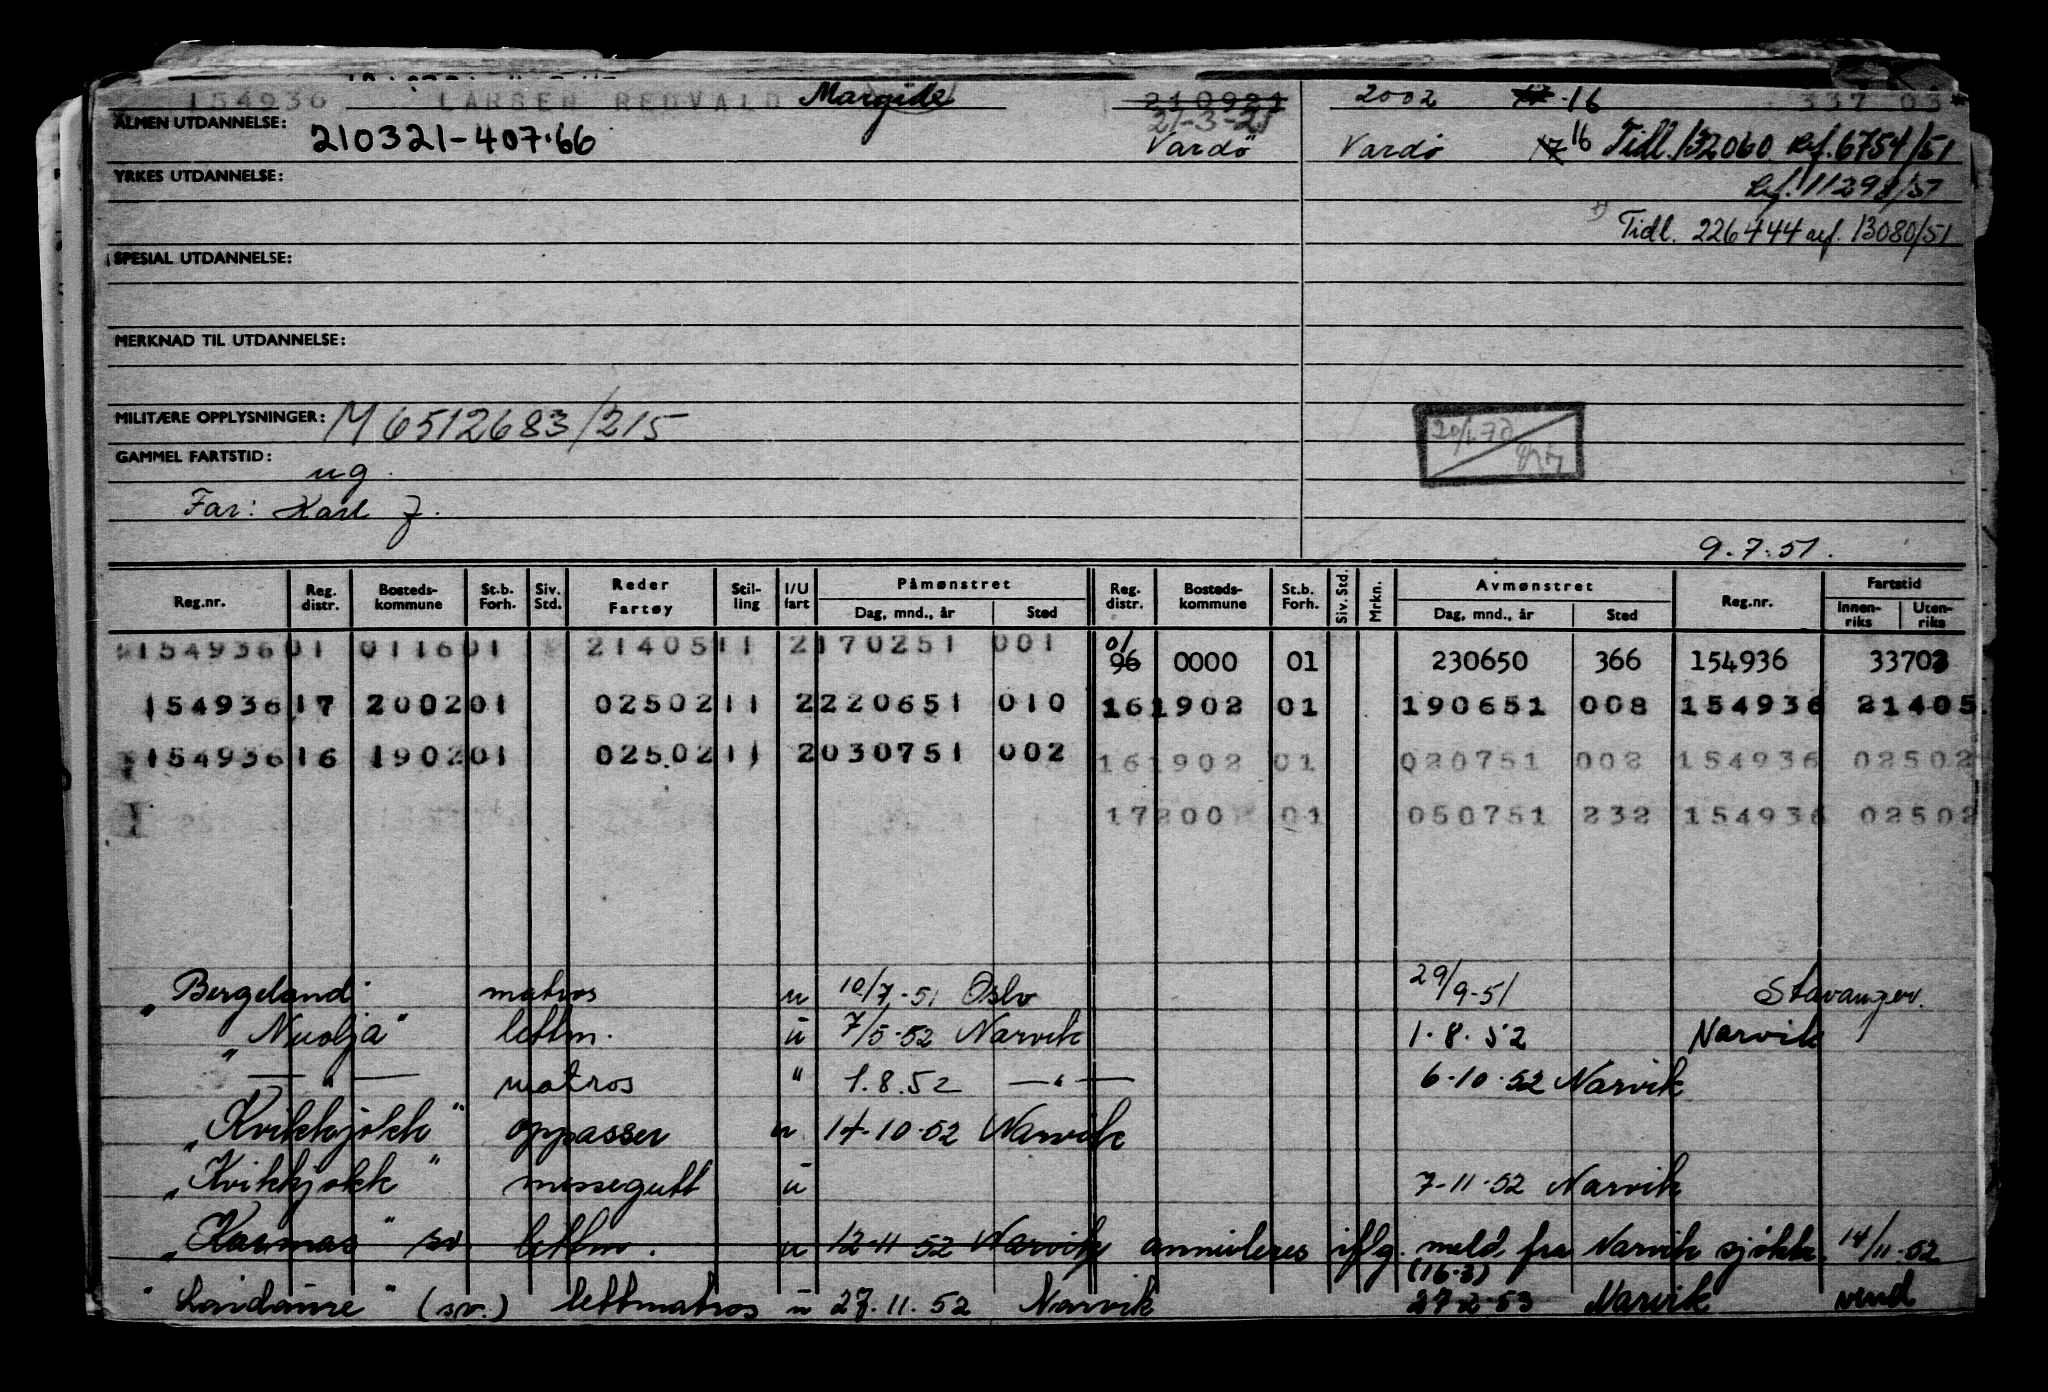 154936 LARSEN REDVALD Margido 210921 2002 16 337 03
ALMEN UTDANNELSE: 210321-407.66 21-3-21
Vardö Vardö 16 Tidl. 132060 Ref. 6754/51
YRKES UTDANNELSE: Ref. 11298/51
Tidl. 226444 ref. 13080/51
SPESIAL UTDANNELSE:
MERKNAD TIL UTDANNELSE:
MILITÆRE OPPLYSNINGER: M 6512683/215
20/1.70
GAMMEL FARTSTID: ug.
Far: Karl J.
9.7.51.
Reg.nr. Reg. distr. Bosteds-kommune St.b. Forh. Siv. Std. Reder Fartøy Stil-ling I/U fart Påmønstret Dag, mnd., år Sted Reg. distr. Bosteds-kommune St.b. Forh. Siv. Std. Mrkn. Avmønstret Dag, mnd., år Sted Reg.nr. Fartstid Innen-riks Uten-riks
154936 01 0116 01 21405 11 2 170251 001 01 96 0000 01 230650 366 154936 33703
154936 17 2002 01 02502 11 2 220651 010 16 1902 01 190651 008 154936 21405
154936 16 1902 01 02502 11 2 030751 002 16 1902 01 020751 002 154936 02502
17 200 01 050751 232 154936 02502
"Bergeland" matros u 10/7.-51 Oslo 29/9-51 Stavanger.
"Nuolja" lettm. u 7/5-52 Narvik 1.8.52 Narvik
— " — matros " 1.8.52 — " — 6-10-52 Narvik
"Kvikkjokk" oppasser u 14-10-52 Narvik
"Kvikkjokk" messegutt u 7-11-52 Narvik
"Karmas" sv lettm. u 12-11-52 Narvik annuleres iflg. meld fra Narvik sjökk. 14/11-52
(16-3)
"Laidaure" (sv.) lettmatros u 27.11.52 Narvik 27-2-53 Narvik